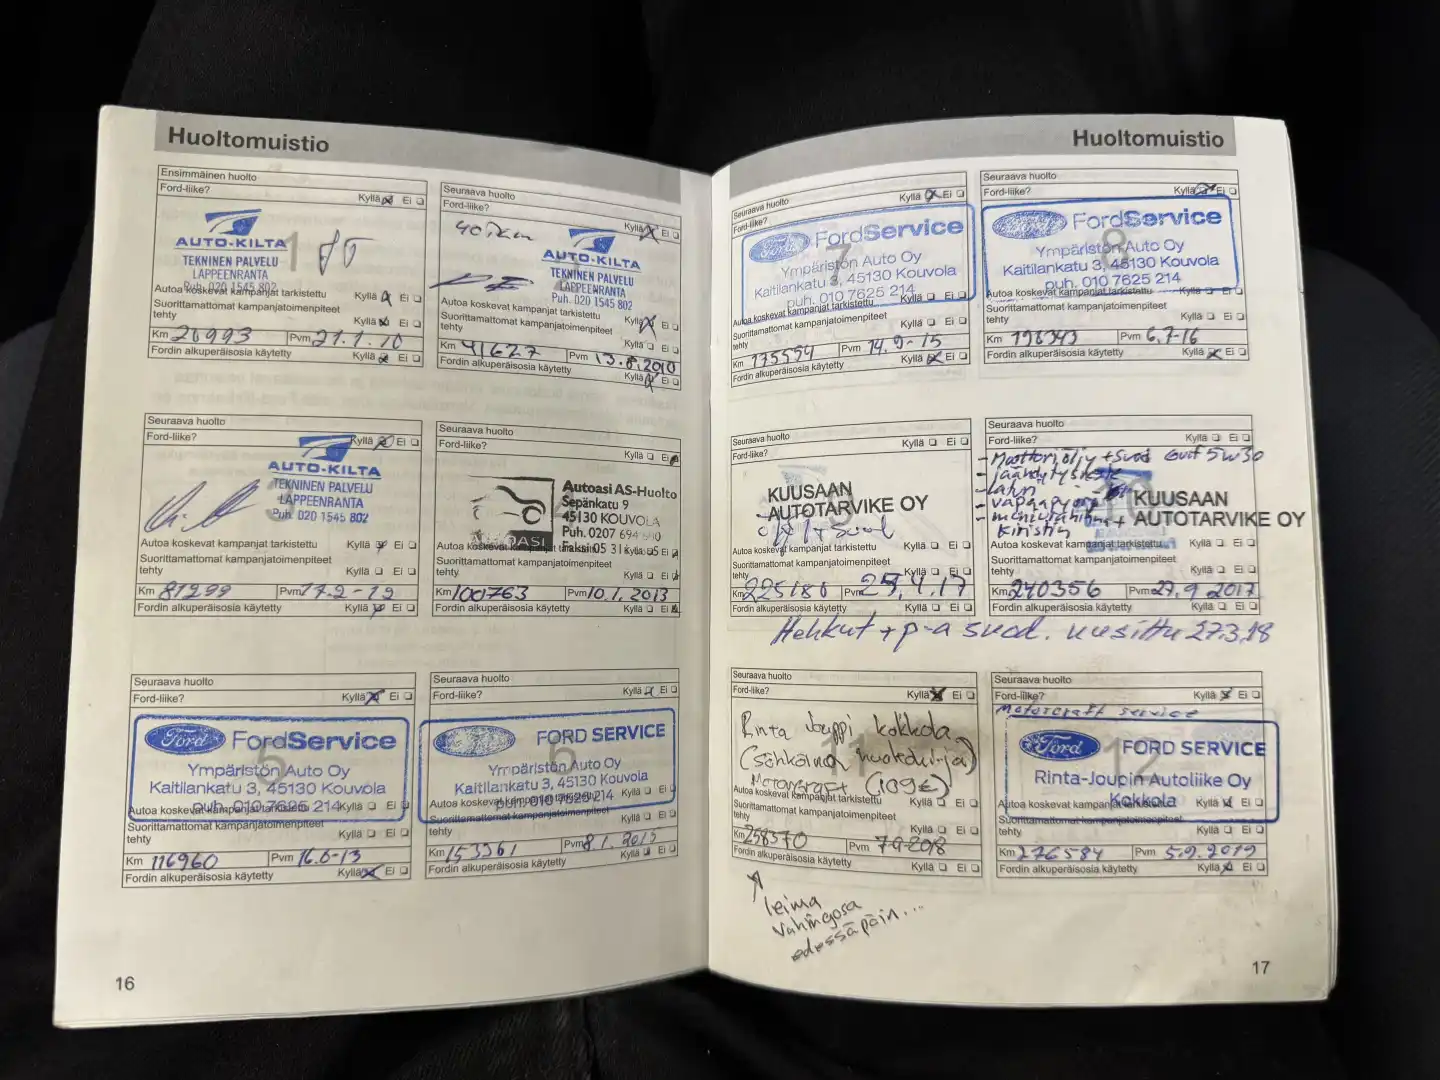 Huoltomuistio
Ensimmäinen huolto
Ford-liike?
Kyllä Ei
1
AUTO-KILTA
TEKNINEN PALVELU
LAPPEENRANTA
Puh. 020 1545 802
Autoa koskevat kampanjat tarkistettu Kyllä Ei
Suorittamattomat kampanjatoimenpiteet
tehty Kyllä Ei
Km 20993 Pvm 21.1.10
Fordin alkuperäisosia käytetty Kyllä Ei
Seuraava huolto
Ford-liike?
Kyllä Ei
40Tkm
AUTO-KILTA
TEKNINEN PALVELU
LAPPEENRANTA
Puh. 020 1545 802
Autoa koskevat kampanjat tarkistettu
Kyllä Ei
Suorittamattomat kampanjatoimenpiteet
tehty Kyllä Ei
Km 41627 Pvm 13.8.2010
Fordin alkuperäisosia käytetty
Kyllä Ei
Seuraava huolto
Ford-liike? Kyllä Ei
3
AUTO-KILTA
TEKNINEN PALVELU
LAPPEENRANTA
Puh. 020 1545 802
Autoa koskevat kampanjat tarkistettu Kyllä Ei
Suorittamattomat kampanjatoimenpiteet
tehty Kyllä Ei
Km 81299 Pvm 17.2-12
Fordin alkuperäisosia käytetty Kyllä Ei
Seuraava huolto
Ford-liike?
Kyllä Ei
Autoasi AS-Huolto
Sepänkatu 9
45130 KOUVOLA
Puh. 0207 694
Autoa koskevat kampanjat tarkistettu Kyllä Ei
Suorittamattomat kampanjatoimenpiteet
tehty Kyllä Ei
Km 100763 Pvm 10.1.2013
Fordin alkuperäisosia käytetty Kyllä Ei
Seuraava huolto
Ford-liike? Kyllä Ei
5
Ford FordService
Ympäristön Auto Oy
Kaitilankatu 3, 45130 Kouvola
puh. 010 7625 214
Autoa koskevat kampanjat tarkistettu Kyllä Ei
Suorittamattomat kampanjatoimenpiteet
tehty Kyllä Ei
Km 116960 Pvm 16.6-13
Fordin alkuperäisosia käytetty Kyllä Ei
Seuraava huolto
Ford-liike? Kyllä Ei
6
FORD SERVICE
Ympäristön Auto Oy
Kaitilankatu 3, 45130 Kouvola
puh. 010 7625 214
Autoa koskevat kampanjat tarkistettu Kyllä Ei
Suorittamattomat kampanjatoimenpiteet
tehty Kyllä Ei
Km Pvm 8.1.2015
Fordin alkuperäisosia käytetty Kyllä Ei
16
Huoltomuistio
Seuraava huolto
Ford-liike? Kyllä Ei
7
Ford FordService
Ympäristön Auto Oy
Kaitilankatu 3, 45130 Kouvola
puh. 010 7625 214
Autoa koskevat kampanjat tarkistettu Kyllä Ei
Suorittamattomat kampanjatoimenpiteet
tehty Kyllä Ei
Km 175554 Pvm 14.9-15
Fordin alkuperäisosia käytetty Kyllä Ei
Seuraava huolto
Ford-liike? Kyllä Ei
8
FordService
Ympäristön Auto Oy
Kaitilankatu 3, 45130 Kouvola
puh. 010 7625 214
Autoa koskevat kampanjat tarkistettu Kyllä Ei
Suorittamattomat kampanjatoimenpiteet
tehty Kyllä Ei
Km 196343 Pvm 6.7-16
Fordin alkuperäisosia käytetty Kyllä Ei
Seuraava huolto
Ford-liike? Kyllä Ei
9
KUUSAAN
AUTOTARVIKE OY
Autoa koskevat kampanjat tarkistettu Kyllä Ei
Suorittamattomat kampanjatoimenpiteet
tehty Kyllä Ei
Km 225180 Pvm 25.4.17
Fordin alkuperäisosia käytetty Kyllä Ei
Seuraava huolto
Ford-liike? Kyllä Ei
- Moottoriöljy + suod Gulf 5W30
- jäähdytysneste
10
KUUSAAN
AUTOTARVIKE OY
kiristin
Autoa koskevat kampanjat tarkistettu Kyllä Ei
Suorittamattomat kampanjatoimenpiteet
tehty Kyllä Ei
Km 240356 Pvm 27.9 2017
Fordin alkuperäisosia käytetty Kyllä Ei
Hehkut + p-a suod. uusittu 27.3.18
Seuraava huolto
Ford-liike? Kyllä Ei
11
Rinta Jouppi Kokkola
(sähköinen huoltokirja)
Motorcraft (109€)
Autoa koskevat kampanjat tarkistettu Kyllä Ei
Suorittamattomat kampanjatoimenpiteet
tehty Kyllä Ei
Km 258370 Pvm 7-9-2018
Fordin alkuperäisosia käytetty Kyllä Ei
leima
vahingossa
edessäpäin...
Seuraava huolto
Ford-liike? Kyllä Ei
Motorcraft service
12
Ford FORD SERVICE
Rinta-Joupin Autoliike Oy
Kokkola
Autoa koskevat kampanjat tarkistettu Kyllä Ei
Suorittamattomat kampanjatoimenpiteet
tehty Kyllä Ei
Km 276584 Pvm 5.9.2019
Fordin alkuperäisosia käytetty Kyllä Ei
17